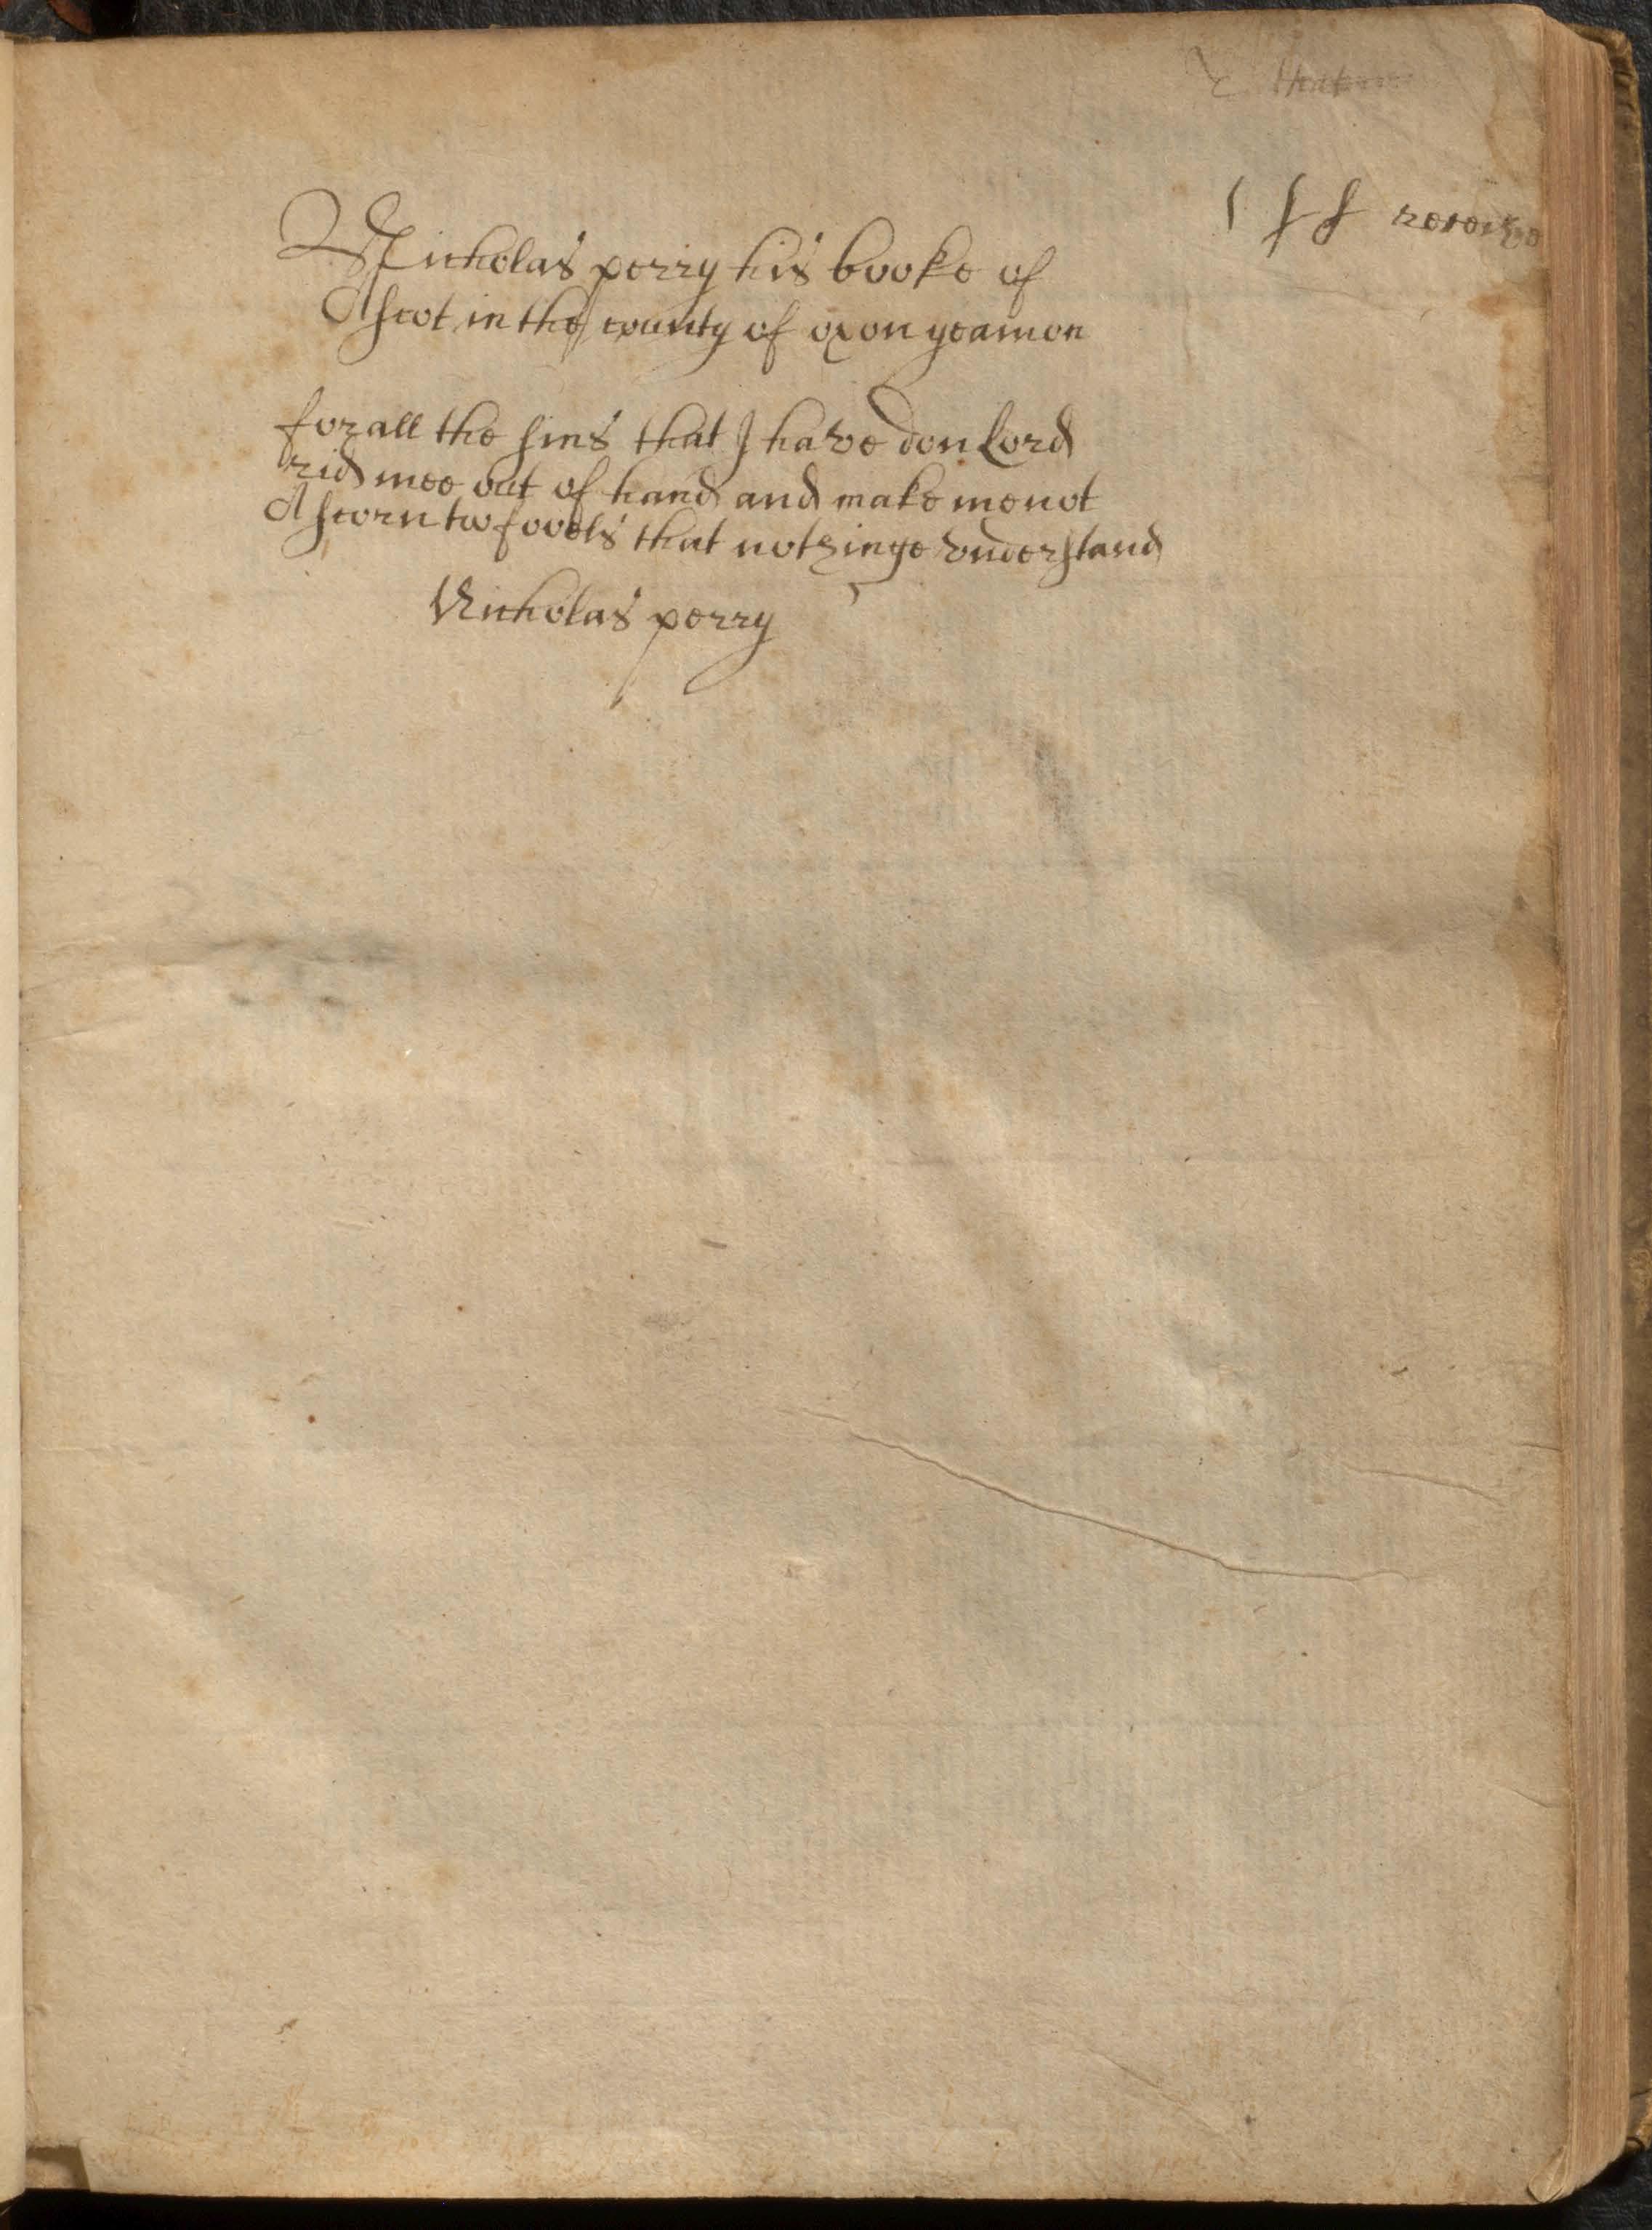 Nicholas perry his booke of
Ascot in the county of oxon yeamon
for all the sins that I have don Lord
rid mee out of hand and make me not
A scorn too fooels that nothinge vnderstand
Nicholas perry